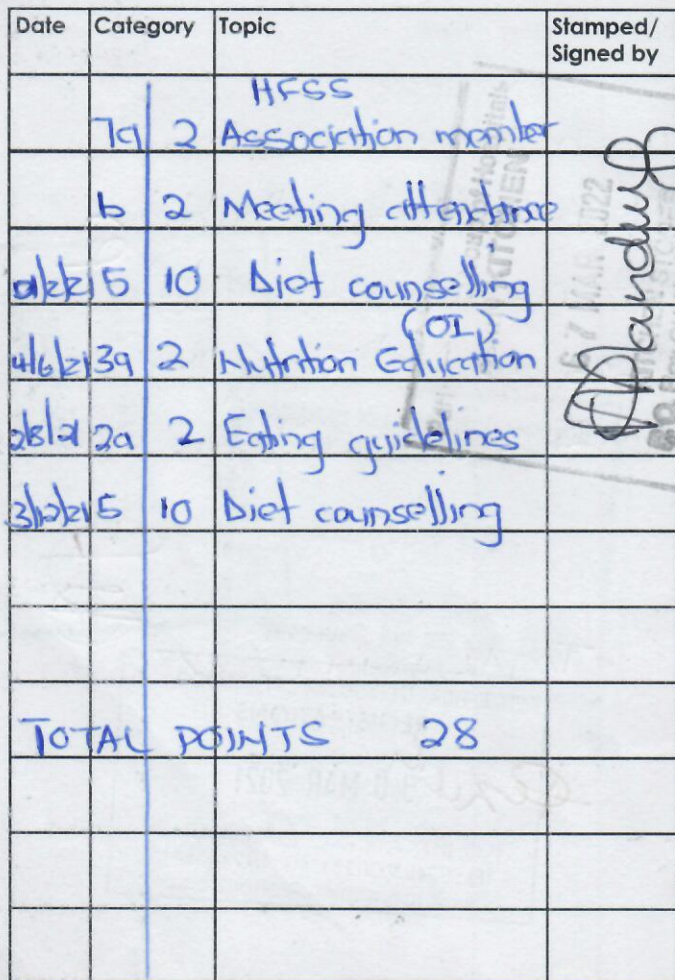 Date Category Topic Stamped/
Signed by
HFSS
7a 2 Association member
b 2 Meeting attendance
5 10 Diet counselling
(OI)
4/6/21 3a 2 Nutrition Education
2/8/21 2a 2 Eating guidelines
3/12/21 5 10 Diet counselling
TOTAL POINTS 28
KITCHEN
7 MAR 2022
MAR 2021